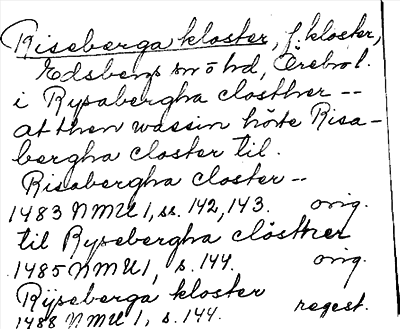 Riseberga kloster, f. kloster,
Edsbergs sn o hd, Örebro l.
i Rysabergha closther --
at then wassin hörte Risa-
bergha closter til.
Risabergha closter --
1483 NMU 1, ss. 142, 143. orig.
til Rysebergha clösther
1485 NMU 1, s. 144. orig.
Rijseberga kloster
1488 NMU 1, s. 144. regest.